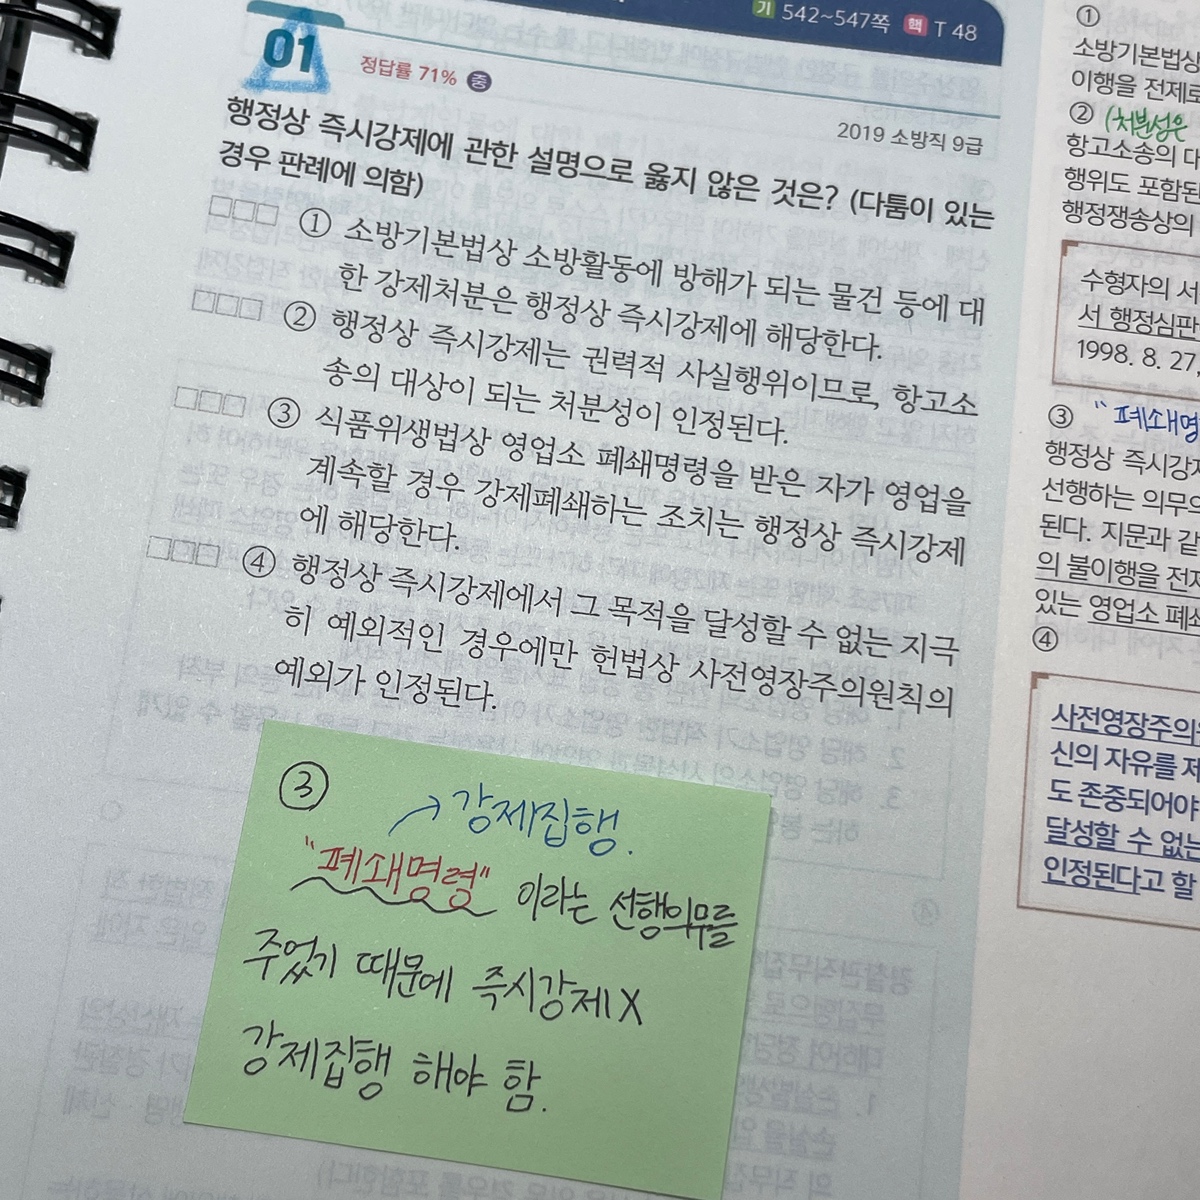 기 542~547쪽 핵 T 48
01
정답률 71% 중
2019 소방직 9급
행정상 즉시강제에 관한 설명으로 옳지 않은 것은? (다툼이 있는
경우 판례에 의함)
① 소방기본법상 소방활동에 방해가 되는 물건 등에 대
한 강제처분은 행정상 즉시강제에 해당한다.
② 행정상 즉시강제는 권력적 사실행위이므로, 항고소
송의 대상이 되는 처분성이 인정된다.
③ 식품위생법상 영업소 폐쇄명령을 받은 자가 영업을
계속할 경우 강제폐쇄하는 조치는 행정상 즉시강제
에 해당한다.
④ 행정상 즉시강제에서 그 목적을 달성할 수 없는 지극
히 예외적인 경우에만 헌법상 사전영장주의원칙의
예외가 인정된다.
③
→강제집행.
"폐쇄명령" 이라는 선행의무를
주었기 때문에 즉시강제X
강제집행 해야 함.
①
소방기본법상
이행을 전제로
② (처분성은
항고소송의 대
행위도 포함된
행정쟁송상의
수형자의 서
서 행정심판
1998. 8. 27,
③ "폐쇄명
행정상 즉시강제
선행하는 의무의
된다. 지문과 같
의 불이행을 전제
있는 영업소 폐쇄
④
사전영장주의원
신의 자유를 제
도 존중되어야
달성할 수 없는
인정된다고 할